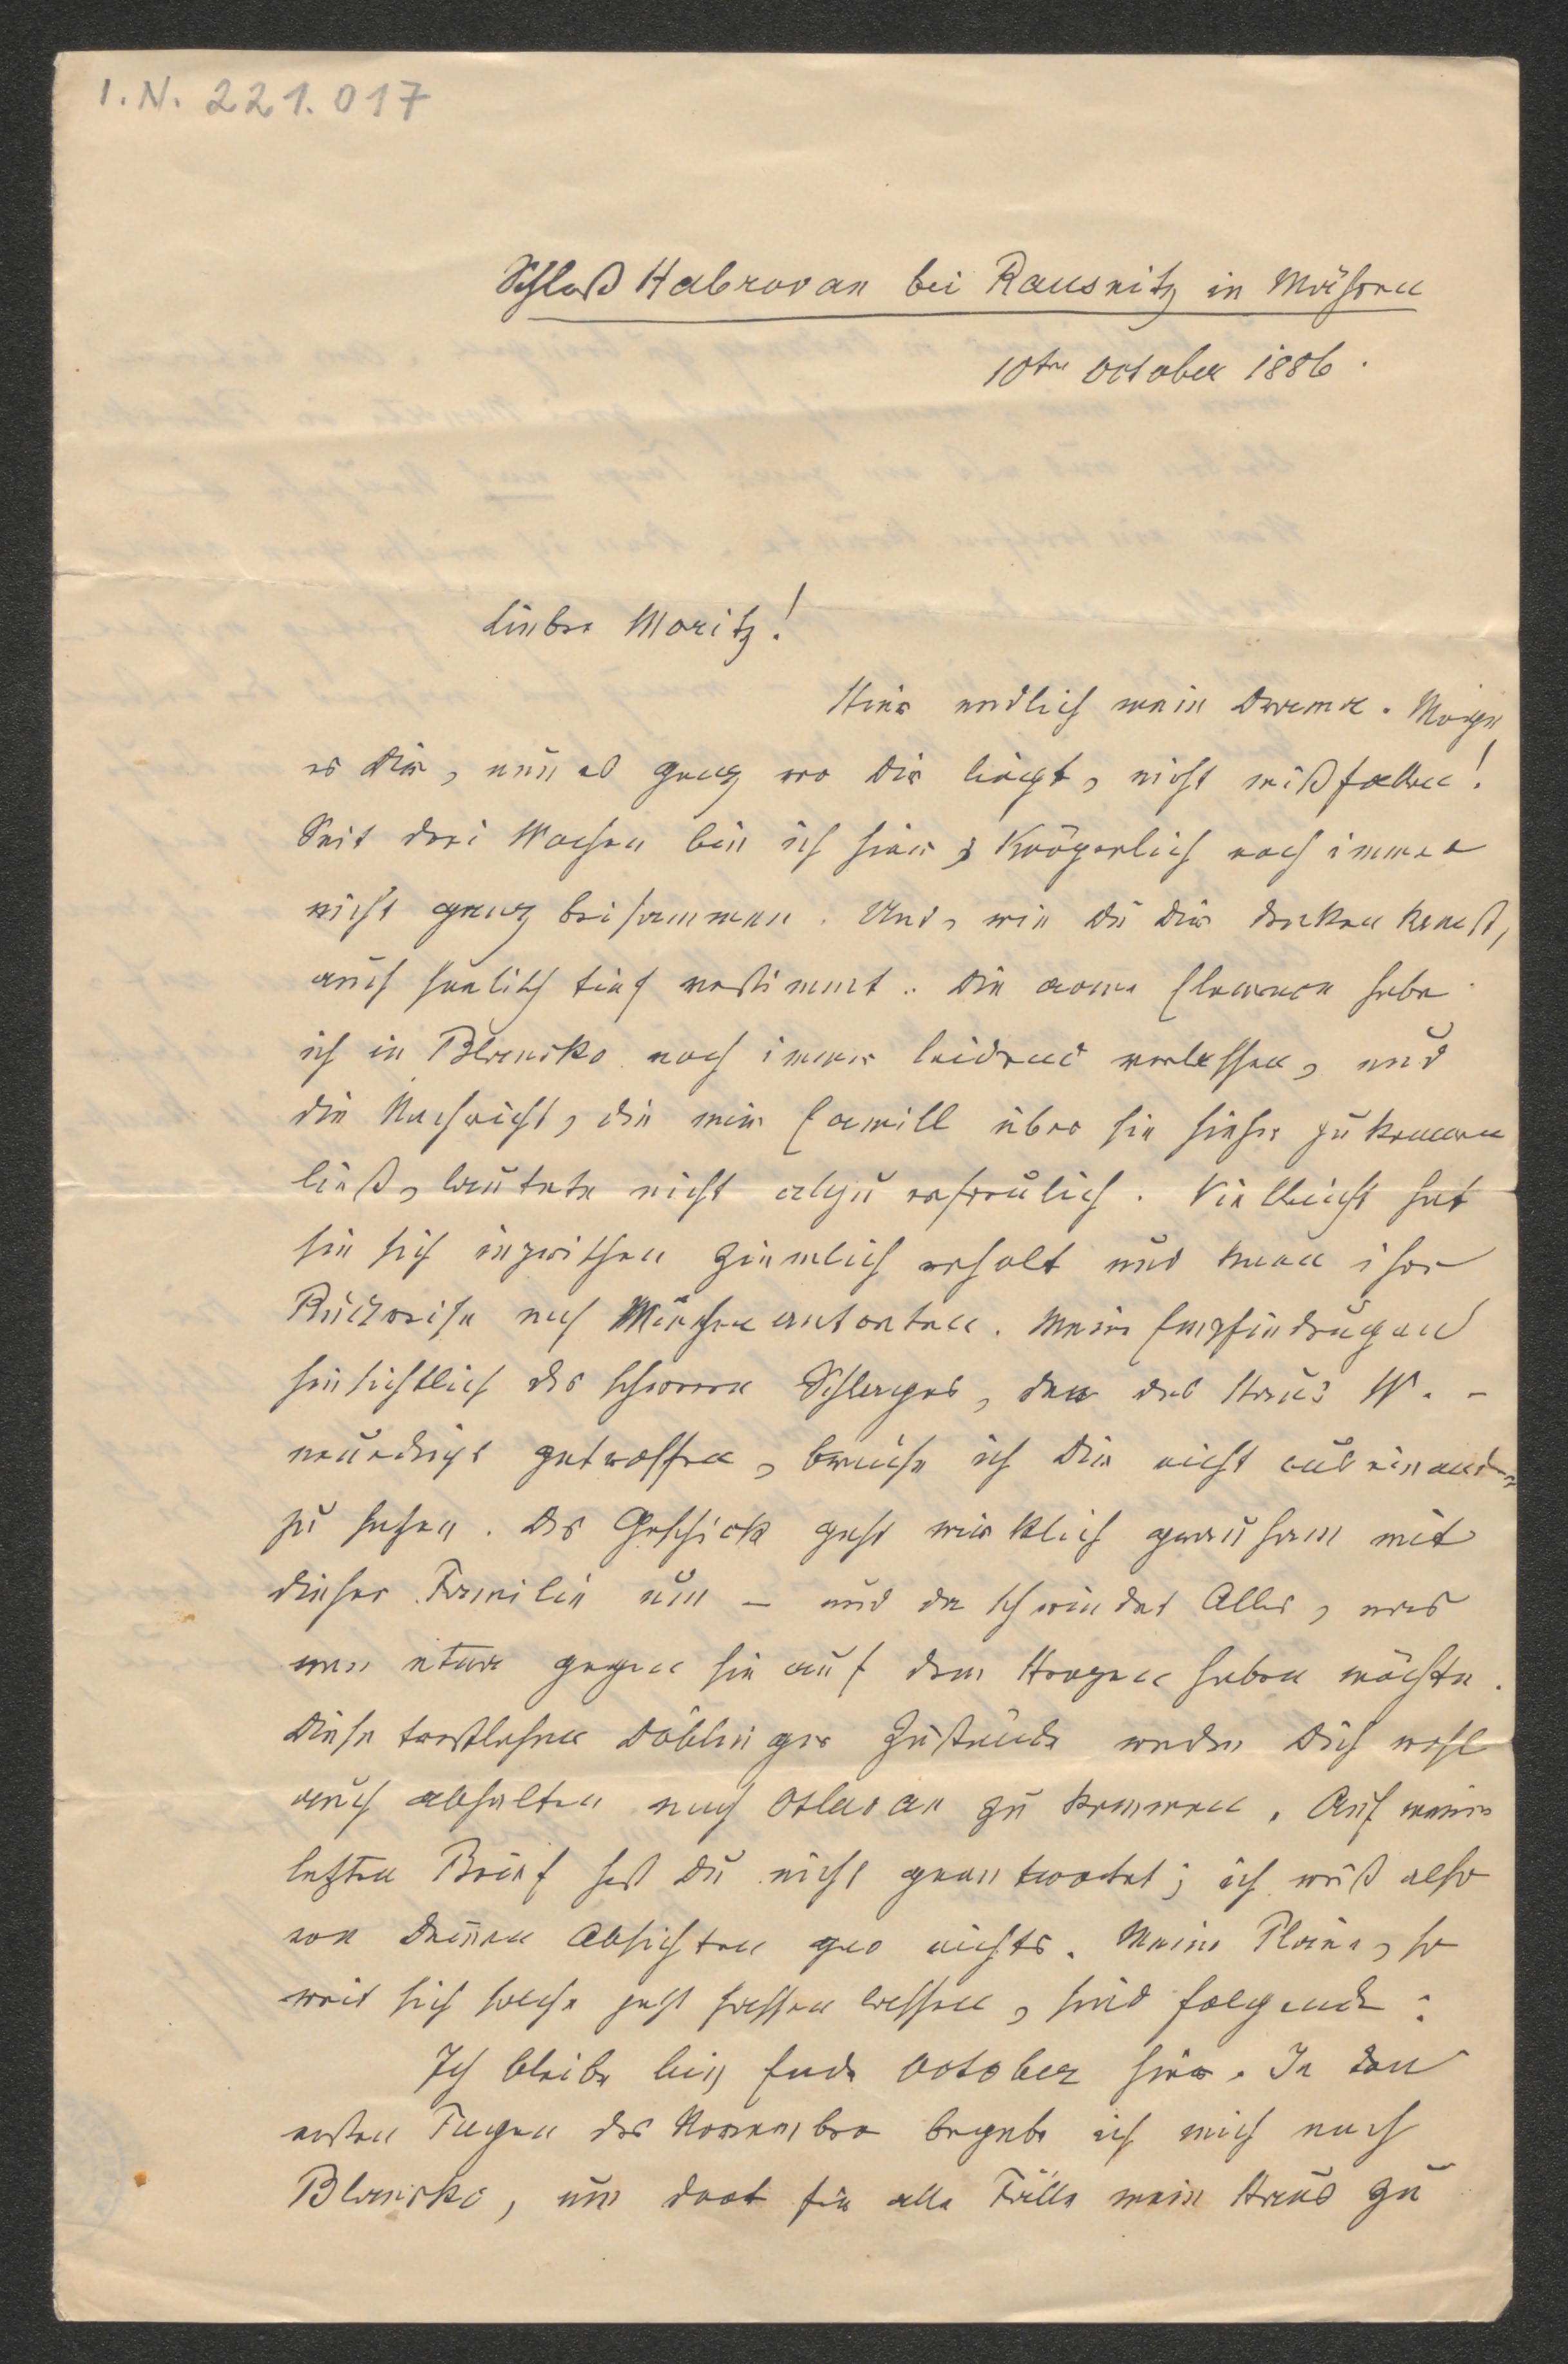 I. N. 221.017
Schloß Habrovan bei Rausnitz in Mähren
10ten October 1886.
Lieber Moritz!
Hier endlich mein Drama. Mögen
es Dir, nun es ganz vor Dir liegt, nicht mißfallen!
Seit drei Wochen bin ich hier; körperlich noch immer
nicht ganz beisammen. Und, wie Du Dir denken kannst,
auch seelisch tief verstimmt. Die arme Clemence habe
ich in Blansko noch immer leidend verlassen, und
die Nachricht, die mir Camill über sie hieher zukommen
ließ, lautete nicht allzu erfreulich. Vielleicht hat
sie sich inzwischen ziemlich erholt und kann ihre
Rückreise nach München antreten. Meine Empfindungen
hinsichtlich des schweren Schlages, der das Haus W. -
neuerdings getroffen, brauche ich Dir nicht auseinander
zu setzen. Das Geschick geht wirklich grausam mit
dieser Familie um - und da schwindet Alles, was
man etwa gegen sie auf dem Herzen haben möchte.
Diese trostlosen Döblinger Zustände werden Dich wohl
auch abhalten nach Oslavan zu kommen. Auf meinen
letzten Brief hast Du nicht geantwortet; ich weiß also
von Deinen Absichten gar nichts. Meine Pläne, so
weit sich solche jetzt fassen lassen, sind folgende:
Ich bleibe bis Ende October hier. In den
ersten Tagen des November begebe ich mich nach
Blansko, um dort für alle Fälle mein Haus zu